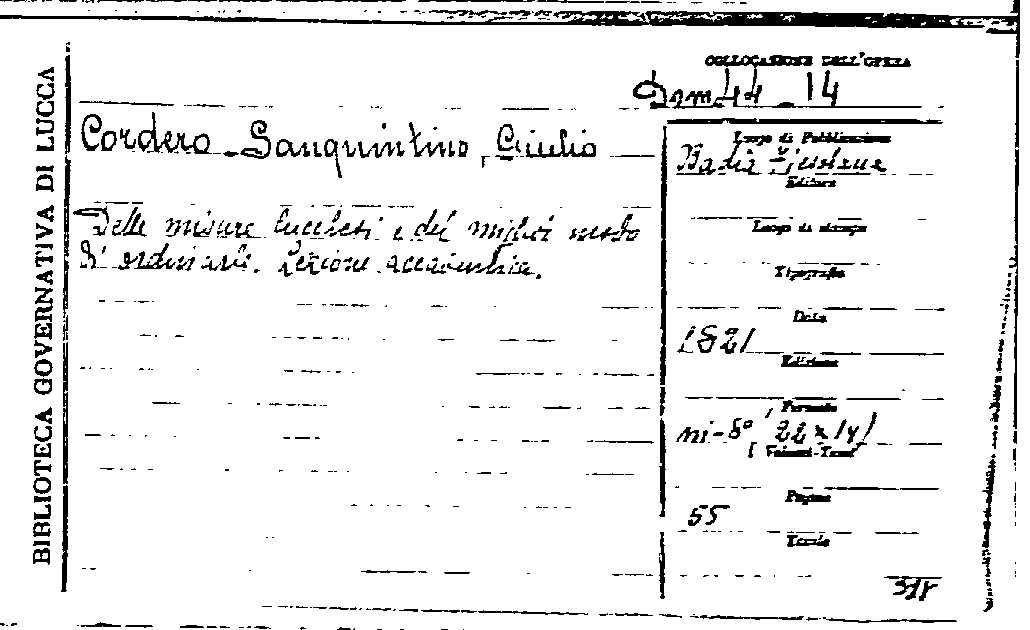 BIBLIOTECA GOVERNATIVA DI LUCCA
COLLOCAZIONE DELL'OPERA
44 - 14
Cordero - Sanquintino, Giulio
Delle misure lucchesi e del miglior modo
di ordinarle. Lezione accademica.
Luogo di Pubblicazione
Badia Fiesolana
Editore
Luogo di stampa
Tipografia
Data
1821
Edizione
Formato
in-8° (22 x 14)
Volumi-Tomi
Pagine
55
Tavole